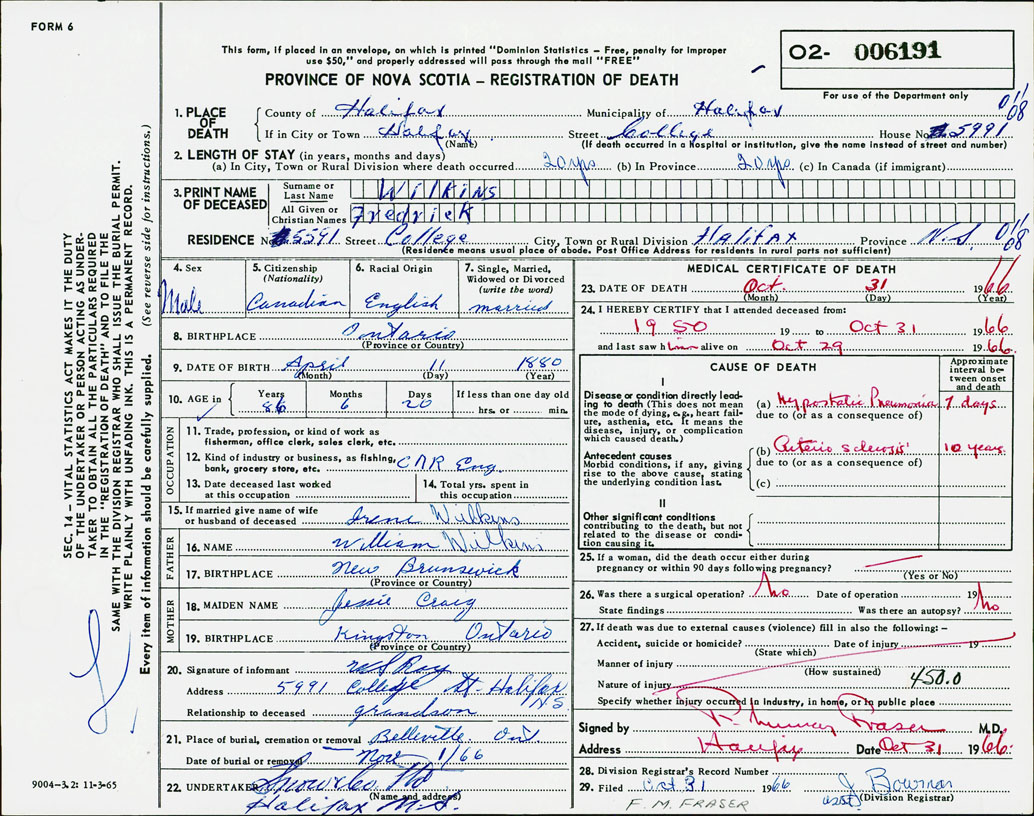 FORM 6
This form, if placed in an envelope, on which is printed "Dominion Statistics – Free, penalty for improper
use $50," and properly addressed will pass through the mail "FREE"
O2- 006191
For use of the Department only
PROVINCE OF NOVA SCOTIA – REGISTRATION OF DEATH
011
08
1. PLACE OF DEATH
County of Halifax Municipality of Halifax
If in City or Town Halifax Street College House No. 5991
(Name) (If death occurred in a Hospital or Institution, give the name instead of street and number)
2. LENGTH OF STAY (in years, months and days)
(a) In City, Town or Rural Division where death occurred 20 yrs (b) In Province 20 yrs (c) In Canada (if immigrant)
3. PRINT NAME OF DECEASED
Surname or Last Name Wilkins
All Given or Christian Names Fredrick
RESIDENCE No. 5591 Street College City, Town or Rural Division Halifax Province N.S. 011
08
(Residence means usual place of abode. Post Office Address for residents in rural parts not sufficient)
4. Sex
Male
5. Citizenship (Nationality)
Canadian
6. Racial Origin
English
7. Single, Married, Widowed or Divorced (write the word)
married
8. BIRTHPLACE Ontario
(Province or Country)
9. DATE OF BIRTH April 11 1880
(Month) (Day) (Year)
10. AGE in Years Months Days If less than one day old
86 6 20 hrs. or min.
OCCUPATION
11. Trade, profession or kind of work as
fisherman, office clerk, sales clerk, etc.
12. Kind of industry or business, as fishing,
bank, grocery store, etc. CNR Eng
13. Date deceased last worked
at this occupation
14. Total yrs. spent in
this occupation
15. If married give name of wife
or husband of deceased Irene Wilkins
FATHER
16. NAME William Wilkins
17. BIRTHPLACE New Brunswick
(Province or Country)
MOTHER
18. MAIDEN NAME Jessie Craig
19. BIRTHPLACE Kingston Ontario
(Province or Country)
20. Signature of informant Roy
Address 5991 College St. Halifax
N.S.
Relationship to deceased grandson
21. Place of burial, cremation or removal Belleville Ont
Date of burial or removal Nov 1/66
22. UNDERTAKER Snow & Co
(Name and address)
Halifax N.S.
MEDICAL CERTIFICATE OF DEATH
23. DATE OF DEATH Oct. 31 1966
(Month) (Day) (Year)
24. I HEREBY CERTIFY that I attended deceased from:
1950 19 to Oct 31 1966
and last saw him alive on Oct 29 1966
CAUSE OF DEATH
Approximate interval between onset and death
I
Disease or condition directly lead-
ing to death (This does not mean
the mode of dying, e.g., heart fail-
ure, asthenia, etc. It means the
disease, injury, or complication
which caused death.)
(a) Hypostatic Pneumonia 7 days
due to (or as a consequence of)
Antecedent causes
Morbid conditions, if any, giving
rise to the above cause, stating
the underlying condition last.
(b) Arterio sclerosis 10 years
due to (or as a consequence of)
(c)
II
Other significant conditions
contributing to the death, but not
related to the disease or condi-
tion causing it.
25. If a woman, did the death occur either during
pregnancy or within 90 days following pregnancy?
(Yes or No)
26. Was there a surgical operation? No Date of operation 19
State findings Was there an autopsy? No
27. If death was due to external causes (violence) fill in also the following: –
Accident, suicide or homicide? Date of injury 19
(State which)
Manner of injury
(How sustained)
Nature of injury 450.0
Specify whether injury occurred in industry, in home, or in public place
Signed by Murray Fraser M.D.
Address Halifax Date Oct 31 1966
28. Division Registrar's Record Number
29. Filed Oct 31 1966 J Bowman
asst. (Division Registrar)
F. M. FRASER
SEC. 14 – VITAL STATISTICS ACT MAKES IT THE DUTY
OF THE UNDERTAKER OR PERSON ACTING AS UNDER-
TAKER TO OBTAIN ALL THE PARTICULARS REQUIRED
IN THE "REGISTRATION OF DEATH" AND TO FILE THE
SAME WITH THE DIVISION REGISTRAR WHO SHALL ISSUE THE BURIAL PERMIT.
WRITE PLAINLY WITH UNFADING INK. THIS IS A PERMANENT RECORD.
Every item of information should be carefully supplied. (See reverse side for instructions.)
9004–3.2: 11-3-65